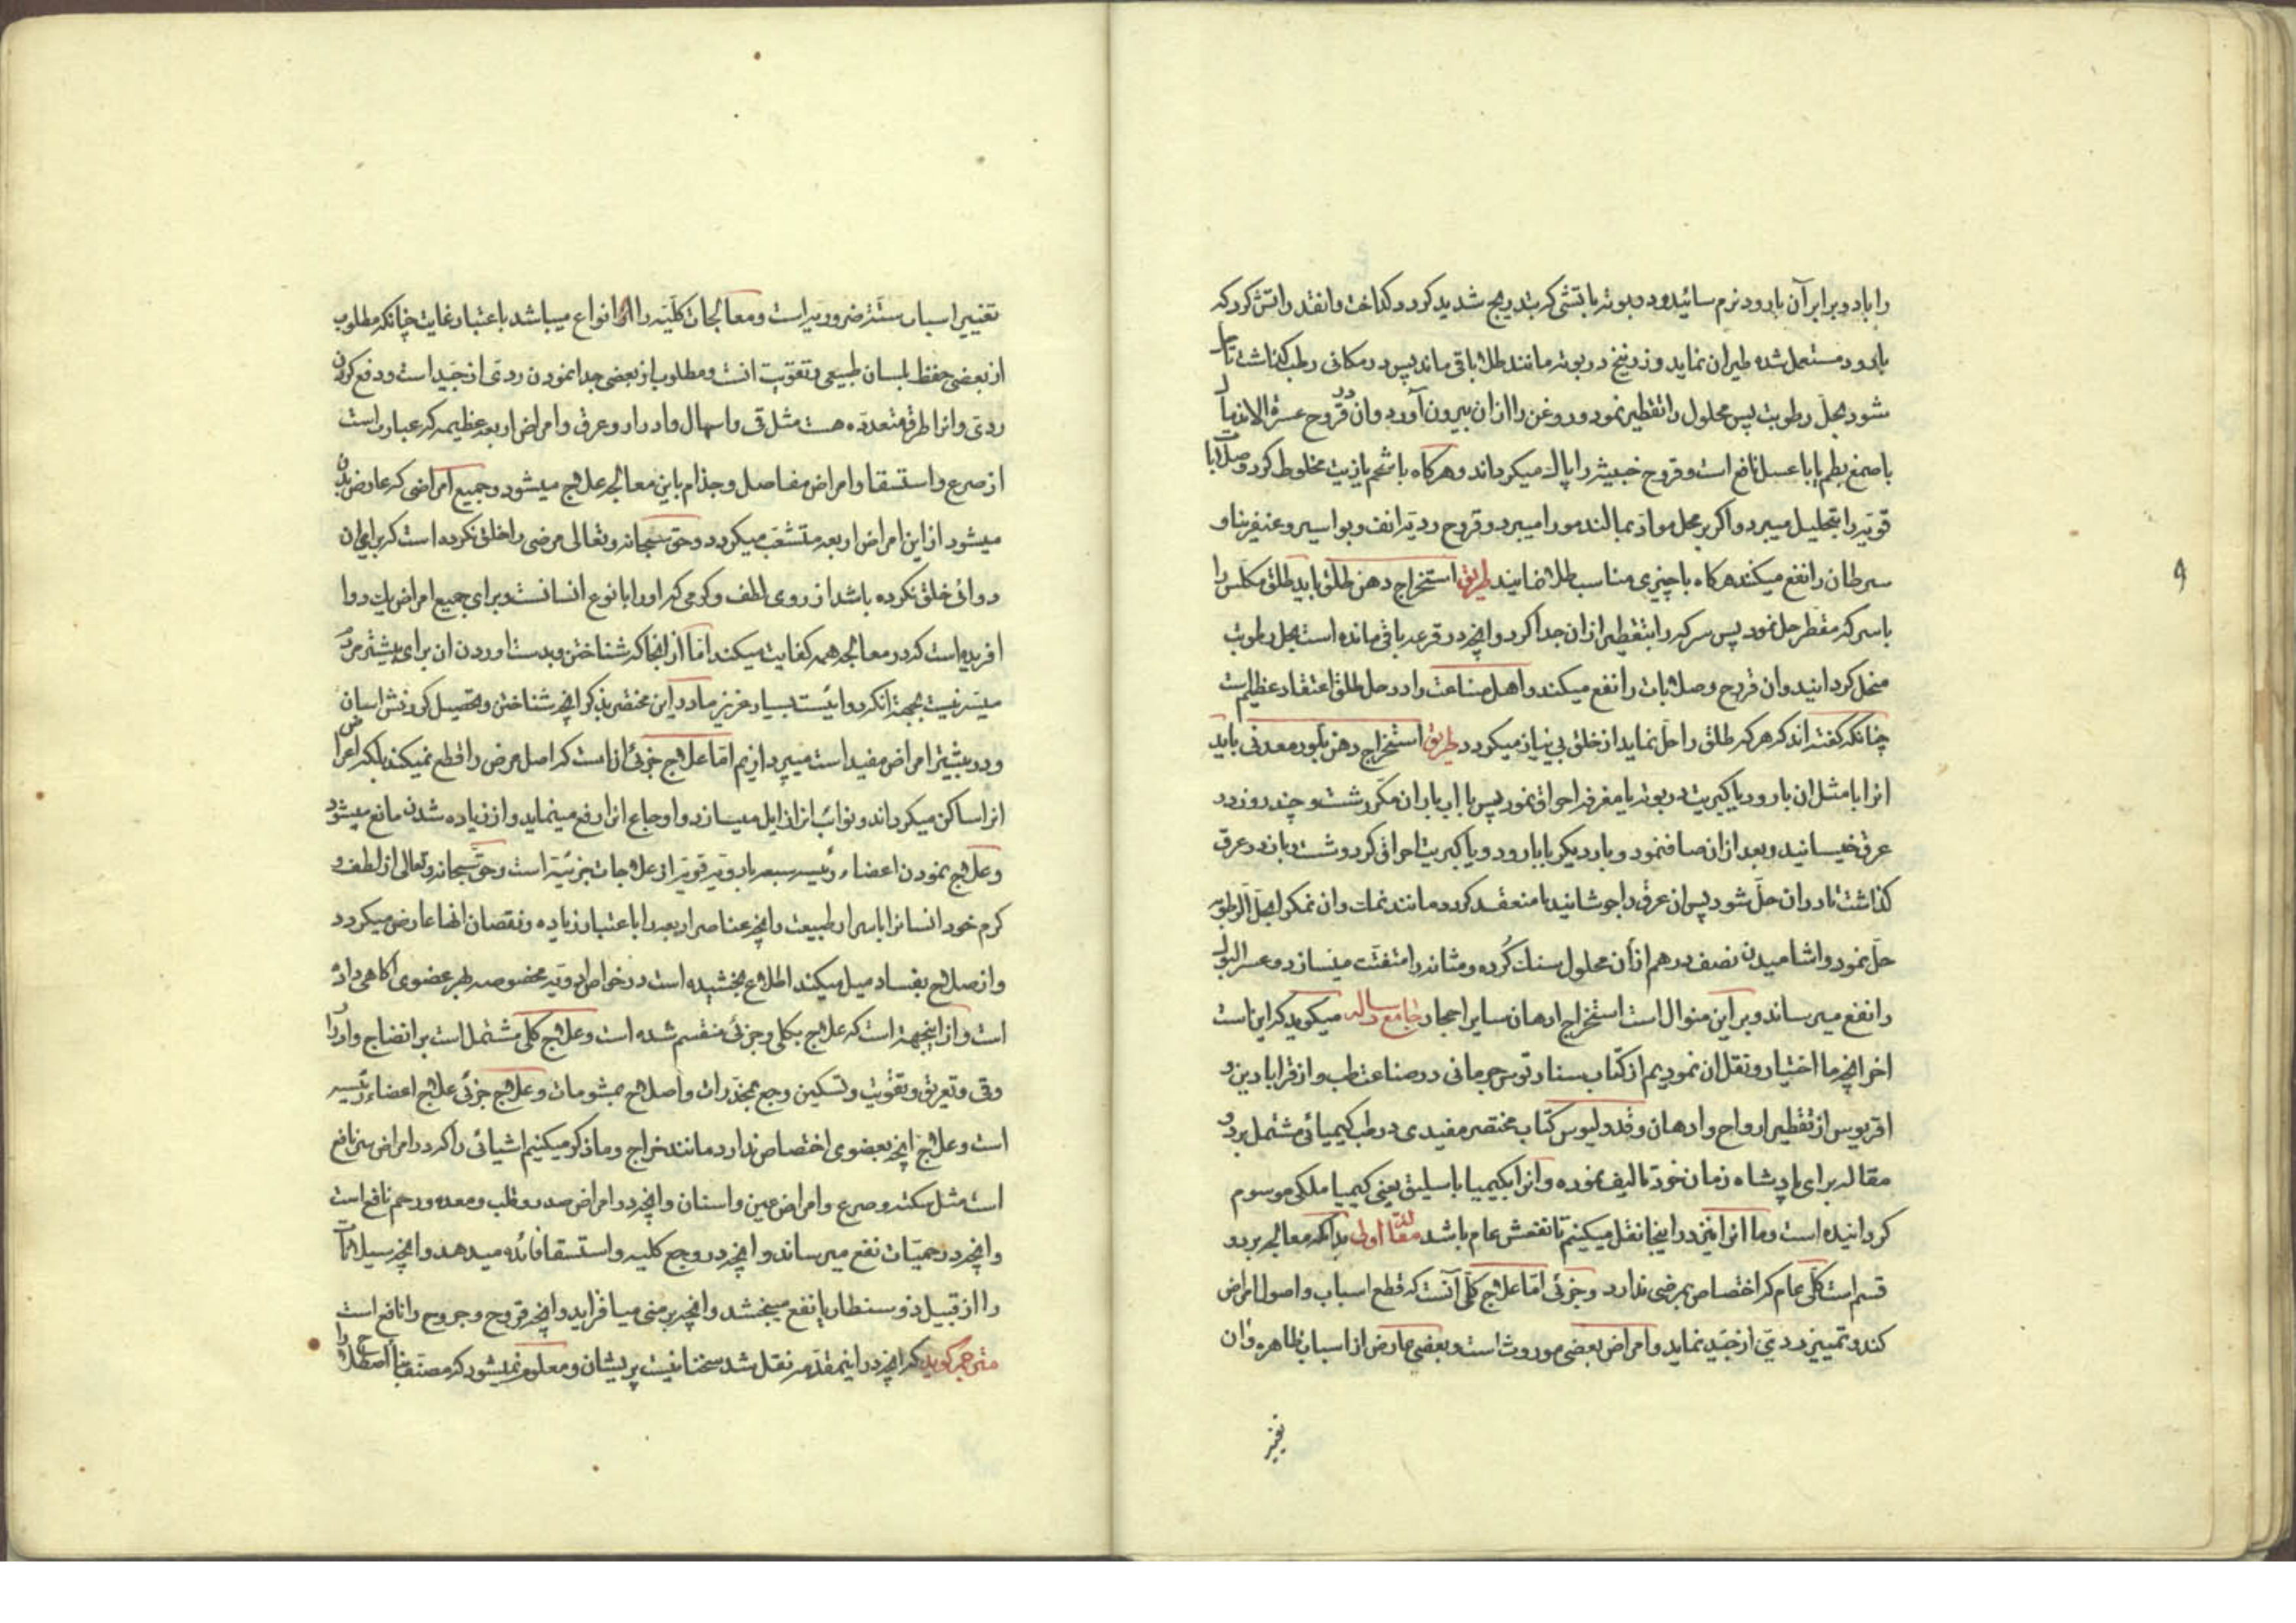 را با دو برابر آن بارود نرم سائیده در بوته با تشی که بتدریج شدید کردد کداخت وانقدر اتش کرد که
بارود مستعمل شده طیران نماید وزرنیخ در بوته مانند طلا باقی ماند پس در مکانی رطب کذاشت تا حل
شود بحل رطوبت پس محلول را تقطیر نمود و روغن را ازان بیرون آورد وان در قروح عسرة الاندمال
با صمغ بطم یا با عسل نافع است وقروح خبیثه را پاک میکرداند وهرکاه با شحم یا زیت مخلوط کرد وصلابات
قویه را بتحلیل میبرد واکر بر محل مواد بمالند مو را میبرد وقروح ردیه انف وبواسیر وغنغرینا و
سرطان را نفع میکند هرکاه با چیزی مناسب طلا نمایند طریق استخراج دهن طلق باید طلق مکلس را
با سرکه مقطر حل نمود پس سرکه را بتقطیر ازان جدا کرد وانچه در قرعه باقی مانده است بحل رطوبت
منحل کردانید وان قروح وصلابات را نفع میکند واهل صناعت را در حل طلق اعتقاد عظیم است
چنانکه کفته اند که هر که طلق را حل نماید از خلق بی نیاز میکردد طریق استخراج دهن بلور معدنی باید
انرا با مثل ان بارود یا کبریت در بوته یا مغرفه احراق نمود پس با اب باران مکرر شست و چند روز در
عرق خیسانید وبعد ازان صاف نمود و بار دیکر با بارود و یا کبریت احراق کرد و شست و باز در عرق
کذاشت تا در ان حل شود پس ان عرق را جوشانید تا منعقد کردد مانند نمک وان نمک را بحل الرطوبه
حل نمود واشامیدن نصف درهم ازان محلول سنک کرده ومثانه را متفتت میسازد وعسر البول
را نفع میرساند وبر این منوال است استخراج ادهان سایر احجار جامع رساله میکوید که این است
اخر انچه ما اختیار ونقل ان نمودیم از کتاب سنارتوس جرمانی در صناعت طب واز قرابادین و
اقریویس از تقطیر ارواح وادهان وقدولیوس کتاب مختصر مفیدی در طب کیمیائی مشتمل بر دو
مقاله برای پادشاه زمان خود تالیف نموده وانرا بکیمیا باسلیق یعنی کیمیا ملکی موسوم
کردانیده است وما انرا نیز در اینجا نقل میکنیم تا نفعش عام باشد مقالهٔ اولی بدانکه معالجه بر دو
قسم است کلی عام که اختصاص بمرضی ندارد وجزئی اما علاج کلی آنست که قطع اسباب واصول امراض
کند وتمییز ردی از جید نماید وامراض بعضی موروث است وبعضی عارض از اسباب ظاهره وان
تغییر
تغییر اسباب ستهٔ ضروریه است ومعالجات کلیه را انواع میباشد باعتبار غایت چنانکه مطلوب
از بعضی حفظ لبسان طبیعی وتقویت انست ومطلوب از بعضی جدا نمودن ردی از جید است ودفع کردن
ردی وانرا طرق متعدده هست مثل قی واسهال وادرار وعرق وامراض اربعه عظیمه که عبارت است
از صرع واستسقا وامراض مفاصل وجذام باین معالجه علاج میشود وجمیع امراضی که عارض بدن
میشود از این امراض اربعه متشعب میکردد وحق سبحانه وتعالی مرضی را خلق نکرده است که برای ان
دوائی خلق نکرده باشد از روی لطف وکرمی که او را با نوع انسانست وبرای جمیع امراض یک دوا
افریده است که در معالجه همه کفایت میکند اما از انجا که شناختن وبدست اوردن ان برای بیشتر مردم
میسر نیست بجهة انکه دوائیست بسیار عزیز ما در این مختصر بذکر انچه شناختن وتحصیل کردنش اسان
ودر بیشتر امراض مفید است میپردازیم اما علاج جزئی ان است که اصل مرض را قطع نمیکند بلکه اعراض
انرا ساکن میکرداند ونوائب انرا زایل میسازد واوجاع انرا رفع مینماید واز زیاده شدن مانع میشود
وعلاج نمودن اعضاء رئیسه سبعه بادویه قویه از علاجات جزئیه است وحق سبحانه وتعالی از لطف و
کرم خود انسانرا باسرار طبیعت وانچه عناصر اربعه را باعتبار زیاده ونقصان انها عارض میکردد
واز صلاح بفساد میل میکند اطلاع بخشیده است در خواص ادویه مخصوصه بهر عضوی اکاهی داده
است واز اینجهة است که علاج بکلی وجزئی منقسم شده است وعلاج کلی مشتمل است بر انضاج وادرار
وقی وتعریق وتقویت وتسکین وجع بمخدرات واصلاح بمشمومات وعلاج جزئی علاج اعضاء رئیسه
است وعلاج انچه بعضوی اختصاص ندارد مانند خراج وما ذکر میکنیم اشیائی را که در امراض سر نافع
است مثل سکته وصرع وامراض عین واسنان وانچه در امراض صدر وقلب ومعده ورحم نافع است
وانچه در حمیات نفع میرساند وانچه در وجع کلیه واستسقا فائده میدهد وانچه سیلانات
را از قبیل ذوسنطاریا نفع میبخشد وانچه بر منی میافزاید وانچه قروح وجروح را نافع است
مترجم کوید که انچه در اینمقدمه نقل شد سخنانیست پریشان ومعلوم نمیشود که مصنف بنا اصطلاح را